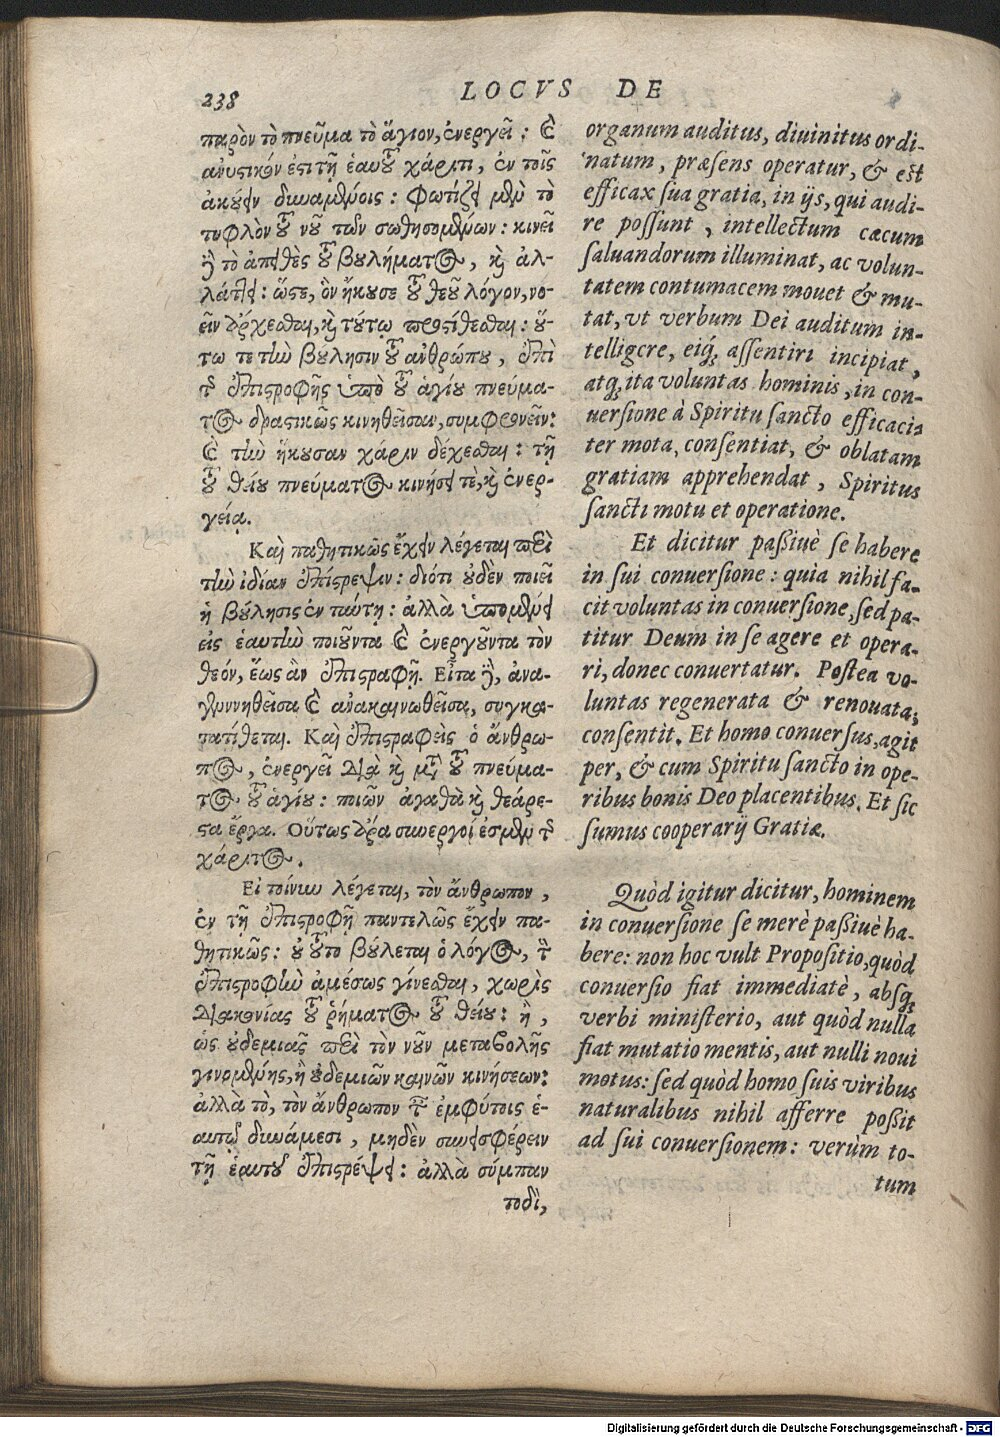 238
LOCVS DE
παρὸν τὸ πνεῦμα τὸ ἅγιον, ἐνεργεῖ: καὶ
ἀνυστικόν ἐστι τῇ ἑαυτοῦ χάριτι, ἐν τοῖς
ἀκούειν δυναμένοις: φωτίζει μὲν τὸ
τυφλὸν τοῦ νοῦ τῶν σωθησομένων: κινεῖ
δὲ τὸ ἀπειθὲς τοῦ βουλήματος, καὶ ἀλ-
λάττει: ὥστε, ὃν ἤκουσε τοῦ θεοῦ λόγον, νο-
εῖν ἄρχεσθαι, καὶ τούτῳ προστίθεσθαι: οὕ-
τω τε τὴν βούλησιν τοῦ ἀνθρώπου, ἐπὶ
τῆς ἐπιστροφῆς ὑπὸ τοῦ ἁγίου πνεύμα-
τος δραστικῶς κινηθεῖσαν, συμφωνεῖν:
καὶ τὴν ἥκουσαν χάριν δέχεσθαι: τῇ
τοῦ θείου πνεύματος κινήσει τὲ, καὶ ἐνερ-
γείᾳ.
Καὶ παθητικῶς ἔχειν λέγεται περὶ
τὴν ἰδίαν ἐπίστρεψιν: διότι οὐδὲν ποιεῖ
ἡ βούλησις ἐν ταύτῃ: ἀλλὰ ὑπομένει
εἰς ἑαυτὴν ποιοῦντα καὶ ἐνεργοῦντα τὸν
θεόν, ἕως ἂν ἐπιστραφῇ. Εἶτα δὲ, ἀνα-
γεννηθεῖσα καὶ ἀνακαινωθεῖσα, συγκα-
τατίθεται. Καὶ ἐπιστραφεὶς ὁ ἄνθρω-
πος, ἐνεργεῖ διὰ καὶ μετὰ τοῦ πνεύμα-
τος τοῦ ἁγίου: ποιῶν ἀγαθὰ καὶ θεάρε-
στα ἔργα. Οὕτως ἄρα συνεργοί ἐσμεν τῆς
χάριτος.
Εἰ τοίνυν λέγεται, τὸν ἄνθρωπον,
ἐν τῇ ἐπιστροφῇ παντελῶς ἔχειν πα-
θητικῶς: οὐ τοῦτο βούλεται ὁ λόγος, τὴν
ἐπιστροφὴν ἀμέσως γίνεσθαι, χωρὶς
διακονίας τοῦ ῥήματος τοῦ θείου: ἢ,
ὡς οὐδεμιᾶς περὶ τὸν νοῦν μεταβολῆς
γινομένης, ἢ οὐδεμιῶν καινῶν κινήσεων:
ἀλλὰ τὸ, τὸν ἄνθρωπον ταῖς ἐμφύτοις ἑ-
αυτοῦ δυνάμεσι, μηδὲν συνεισφέρειν
τῇ ἑαυτοῦ ἐπιστρέψει: ἀλλὰ σύμπαν
τοδὶ,
organum auditus, diuinitus ordi-
natum, præsens operatur, & est
efficax sua gratia, in ijs, qui audi-
re possunt, intellectum cæcum
saluandorum illuminat, ac volun-
tatem contumacem mouet & mu-
tat, vt verbum Dei auditum in-
telligere, eiq; assentiri incipiat,
atq; ita voluntas hominis, in con-
uersione à Spiritu sancto efficaci-
ter mota, consentiat, & oblatam
gratiam apprehendat, Spiritus
sancti motu et operatione.
Et dicitur passiuè se habere
in sui conuersione: quia nihil fa-
cit voluntas in conuersione, sed pa-
titur Deum in se agere et opera-
ri, donec conuertatur. Postea vo-
luntas regenerata & renouata,
consentit. Et homo conuersus, agit
per, & cum Spiritu sancto in ope-
ribus bonis Deo placentibus. Et sic
sumus cooperarij Gratiæ.
Quòd igitur dicitur, hominem
in conuersione se merè passiuè ha-
bere: non hoc vult Propositio, quòd
conuersio fiat immediatè, absq;
verbi ministerio, aut quòd nulla
fiat mutatio mentis, aut nulli noui
motus: sed quòd homo suis viribus
naturalibus nihil afferre possit
ad sui conuersionem: verùm to-
tum
Digitalisierung gefördert durch die Deutsche Forschungsgemeinschaft - DFG